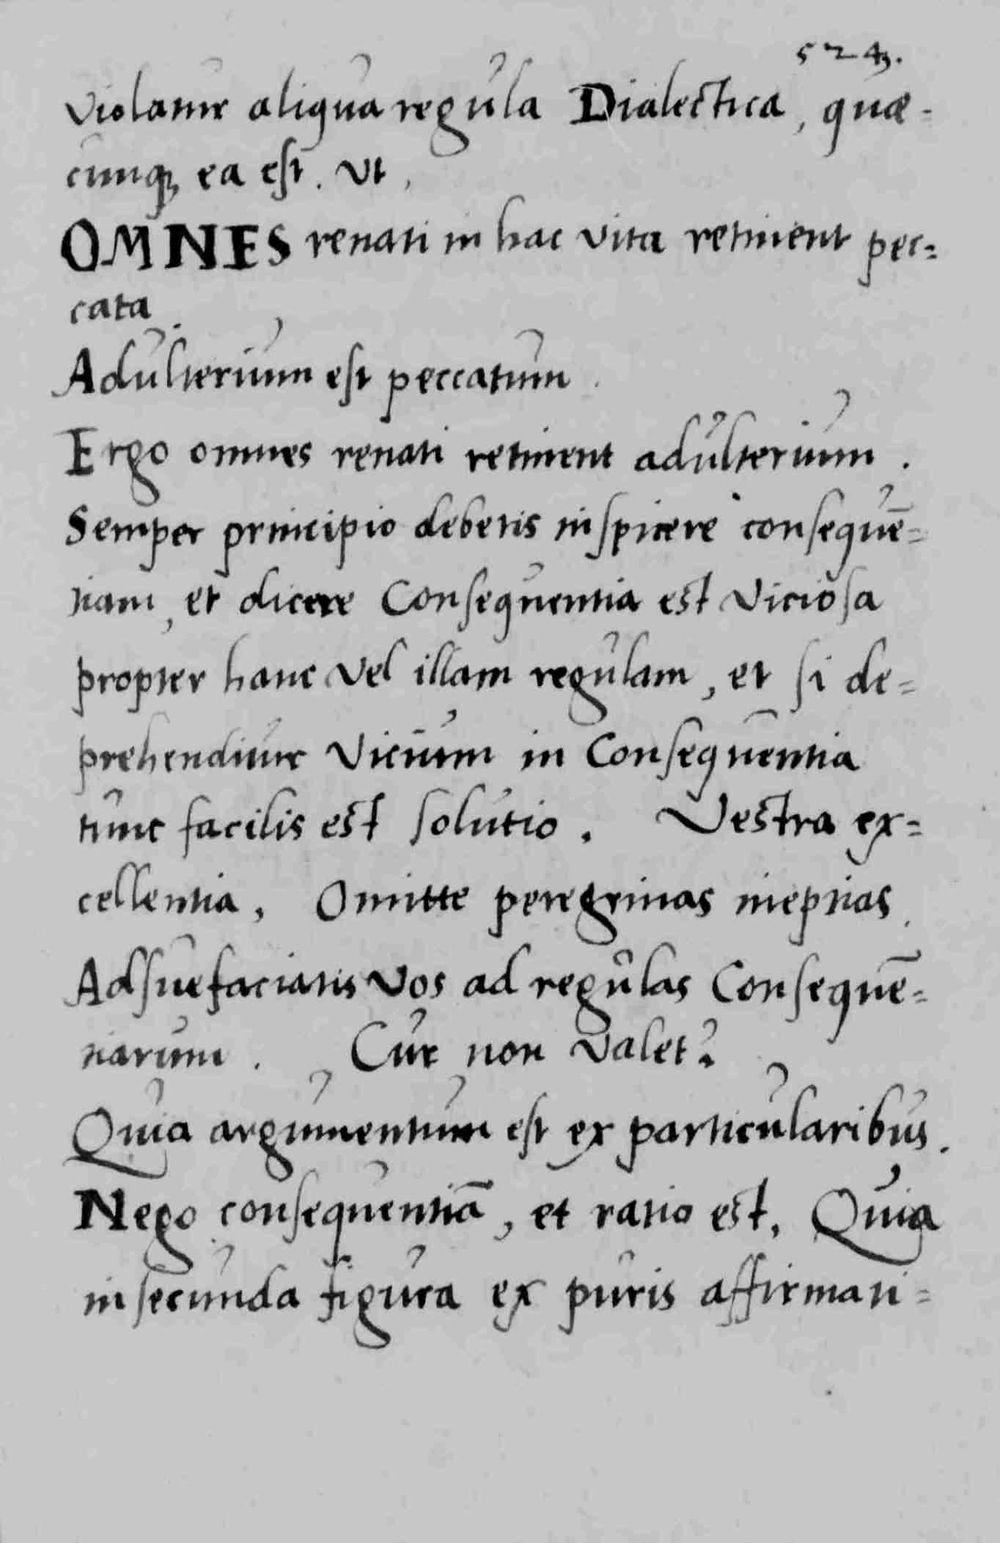 524.
violatur aliqua regula Dialectica, quæ-
cunqꝫ ea est. Vt,
OMNES renati in hac vita retinent pec=
cata.
Adulterium est peccatum.
Ergo omnes renati retinent adulterium.
Semper principio debetis inspicere consequē=
tiam, et dicere Consequentia est viciosa
propter hanc vel illam regulam, et si de=
prehenditur vicium in Consequentia
tunc facilis est solutio. Vestra ex=
cellentia, Omitte peregrinas ineptias.
Adsuefaciatis vos ad regulas Consequē=
tiarum. Cur non valet?
Quia argumentum est ex particularibus.
Nego consequentiā, et ratio est, Quia
in secunda figura ex puris affirmati=